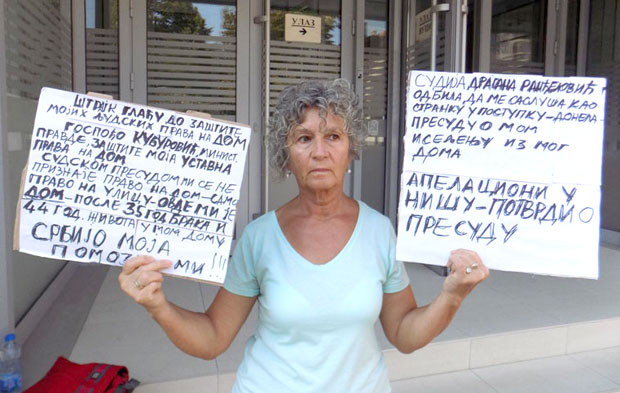 УЛАЗ
ШТРАЈК ГЛАЂУ ДО ЗАШТИТЕ
МОЈИХ ЉУДСКИХ ПРАВА НА ДОМ
ГОСПОЂО КУБУРОВИЋ, МИНИСТ.
ПРАВДЕ, ЗАШТИТЕ МОЈА УСТАВНА
ПРАВА НА ДОМ
СУДСКОМ ПРЕСУДОМ МИ СЕ НЕ
ПРИЗНАЈЕ ПРАВО НА ДОМ-САМО
ПРАВО НА УЛИЦУ-ОВДЕ МИ ЈЕ
ДОМ-ПОСЛЕ 35 ГОД БРАКА И
44 ГОД. ЖИВОТА У МОМ ДОМУ
СРБИЈО МОЈА
ПОМОЗ МИ!!!
СУДИЈА ДРАГАНА РАНЂЕЛОВИЋ
ОДБИЛА ДА МЕ САСЛУША КАО
СТРАНКУ У ПОСТУПКУ-ДОНЕЛА
ПРЕСУДУ О МОМ
ИСЕЉЕЊУ ИЗ МОГ
ДОМА
АПЕЛАЦИОНИ У
НИШУ-ПОТВРДИО
ПРЕСУДУ